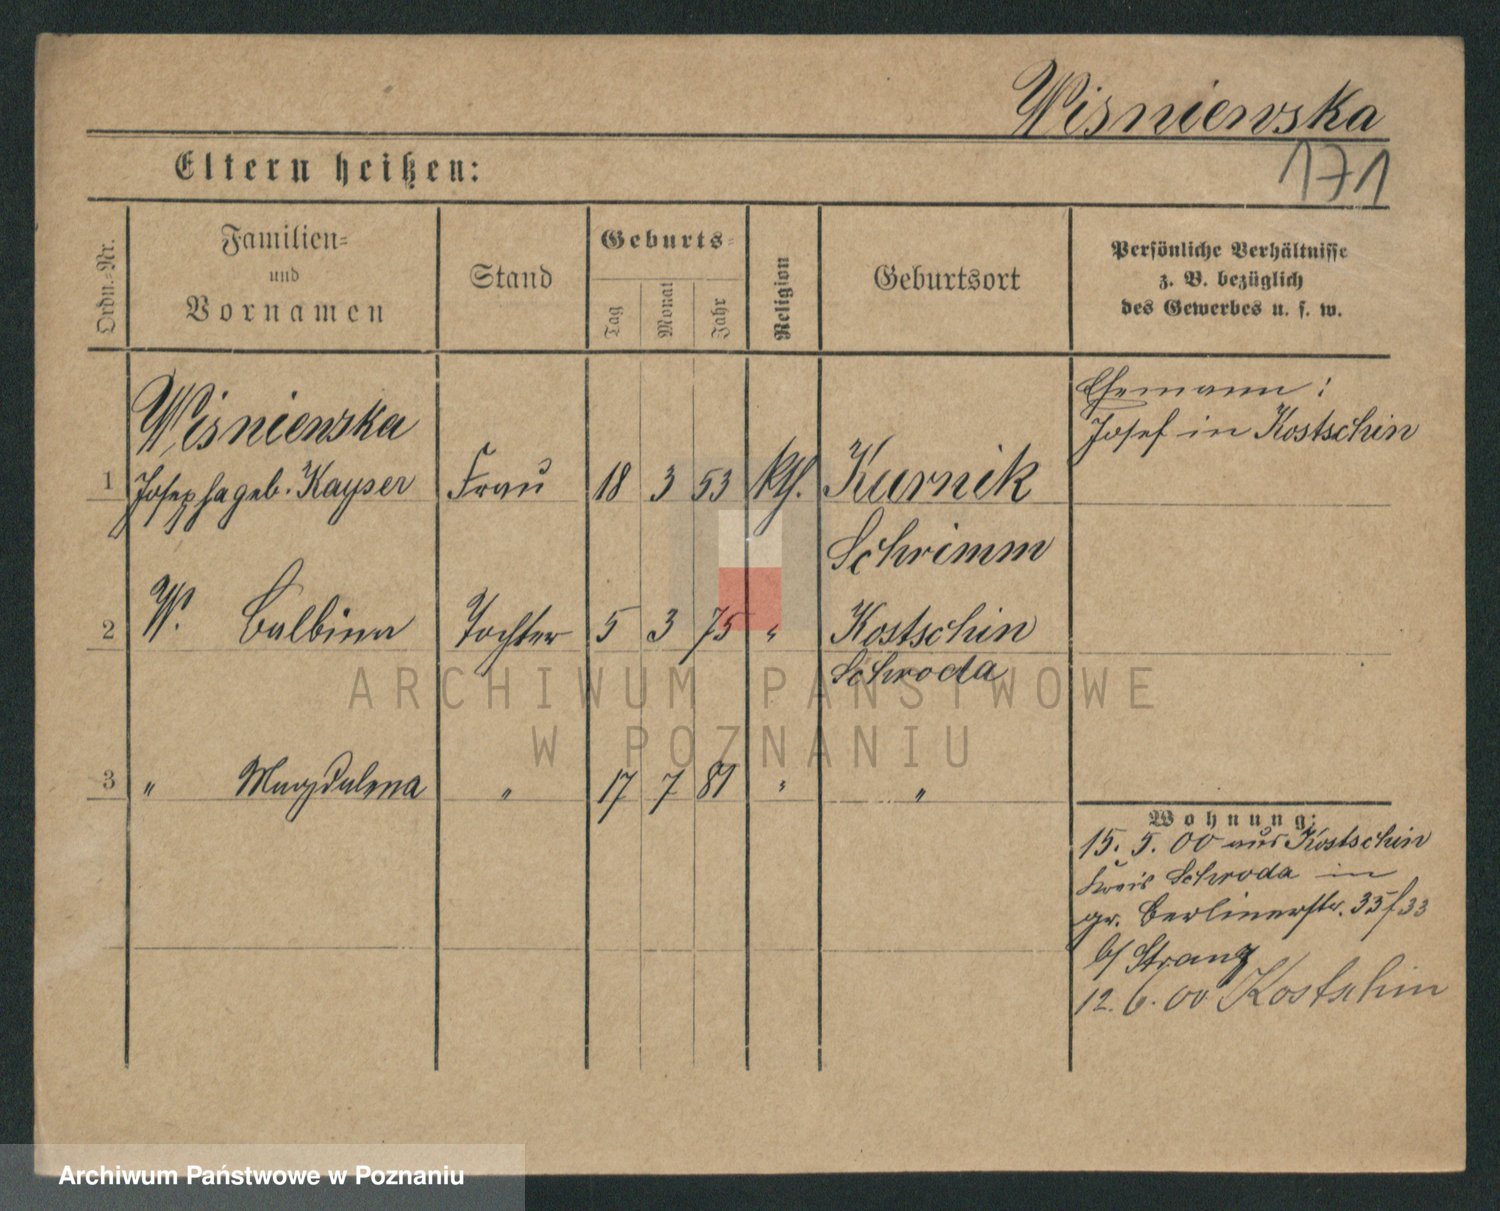 Wisniewska
171
Eltern heißen:
Ordn.-Nr.
Familien-
und
Vornamen
Stand
Geburts-
Tag
Monat
Jahr
Religion
Geburtsort
Persönliche Verhältnisse
z. B. bezüglich
des Gewerbes u. s. w.
Ehemann:
Josef in Kostschin
Wisniewska
1 Josepha geb. Kayser Frau 18 3 53 kth. Kurnik
Schrimm
2 W. Balbina Tochter 5 3 75 " Kostschin
Schroda
3 " Magdalena " 17 7 81 " "
Wohnung:
15. 5. 00 aus Kostschin
Kreis Schroda in
gr. Berlinerstr. 33/33
b/ Stranz
12. 6. 00 Kostschin
ARCHIWUM PAŃSTWOWE
W POZNANIU
Archiwum Państwowe w Poznaniu